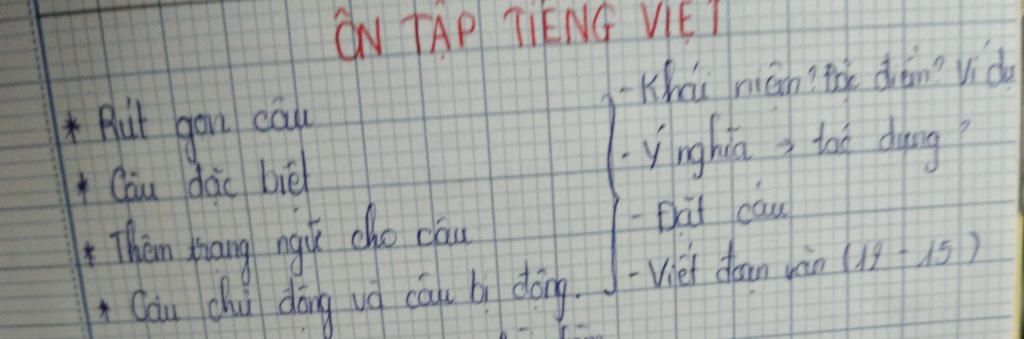 ÔN TẬP TIẾNG VIỆT
* Rút gọn câu
* Câu đặc biệt
* Thêm trạng ngữ cho câu
* Câu chủ động và câu bị động.
- Khái niệm? đặc điểm? Ví dụ
- Ý nghĩa → tác dụng?
- Đặt câu
- Viết đoạn văn (12 - 15)